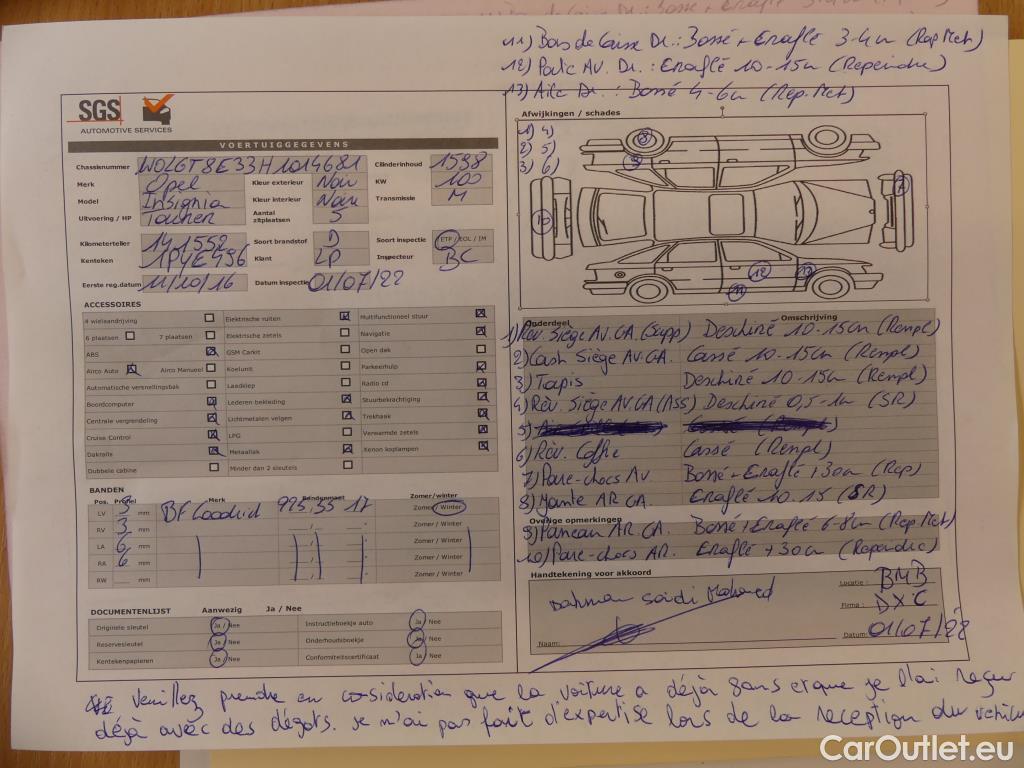 11) Bas de Caisse Dr.: Bossé + Eraflé 3-4cm (Rep Met)
12) Porte AV. Dr. : Eraflé 10-15cm (Repeindre)
13) Aile Dr. : Bossé 4-6cm (Rep.Met)
SGS
AUTOMOTIVE SERVICES
VOERTUIGGEGEVENS
Chassisnummer W0LGT8E33H1014681 Cilinderinhoud 1598
Merk Opel Kleur exterieur Noir KW 100
Model Insignia Kleur interieur Noir Transmissie M
Uitvoering / HP Tourer Aantal zitplaatsen 5
Kilometerteller 141552 Soort brandstof D Soort inspectie ETP / EOL / IM
Kenteken 1PYE496 Klant LP Inspecteur BC
Eerste reg.datum 11/10/16 Datum inspectie 01/07/22
ACCESSOIRES
4 wielaandrijving Elektrische ruiten Multifunctioneel stuur
6 plaatsen 7 plaatsen Elektrische zetels Navigatie
ABS GSM Carkit Open dak
Airco Auto Airco Manueel Koelunit Parkeerhulp
Automatische versnellingsbak Laadklep Radio cd
Boordcomputer Lederen bekleding Stuurbekrachtiging
Centrale vergrendeling Lichtmetalen velgen Trekhaak
Cruise Control LPG Verwarmde zetels
Dakrails Metaallak Xenon koplampen
Dubbele cabine Minder dan 2 sleutels
BANDEN
Pos. Profiel Merk Bandenmaat Zomer/winter
LV 3 mm BF Goodrid 225,55 17 Zomer/Winter
RV 3 mm Zomer / Winter
LA 6 mm Zomer / Winter
RA 6 mm Zomer / Winter
RW mm Zomer / Winter
DOCUMENTENLIJST Aanwezig Ja / Nee
Originele sleutel Ja / Nee Instructieboekje auto Ja / Nee
Reservesleutel Ja / Nee Onderhoudsboekje Ja / Nee
Kentekenpapieren Ja / Nee Conformiteitscertificaat Ja / Nee
Afwijkingen / schades
1) 4)
2) 5)
3) 6)
8
9
7
10
12
13
11
Onderdeel Omschrijving
1) Rev. Siège AV. GA. (Supp) Deschiné 10-15cm (Rempl)
2) Cash Siège AV. GA. Cassé 10-15cm (Rempl)
3) Tapis Deschiné 10-15cm (Rempl)
4) Rev. Siège AV. GA (Ass) Deschiné 0,5-1cm (SR)
5)
6) Rev. Coffre Cassé (Rempl)
7) Pare-chocs AV Bossé + Eraflé +30cm (Rep)
8) Jante AR GA. Eraflé 10-15 (SR)
Overige opmerkingen
9) Panneau AR GA. Bossé + Eraflé 6-8cm (Rep Met)
10) Pare-chocs AR. Eraflé +30cm (Repeindre)
Handtekening voor akkoord
Locatie : BMB
Firma : DXC
Naam: Datum: 01/07/22
Veuillez prendre en consideration que la voiture a déjà 5ans et que je l'ai reçu
déjà avec des dégats. je n'ai pas fait d'expertise lors de la reception du véhicule
CarOutlet.eu